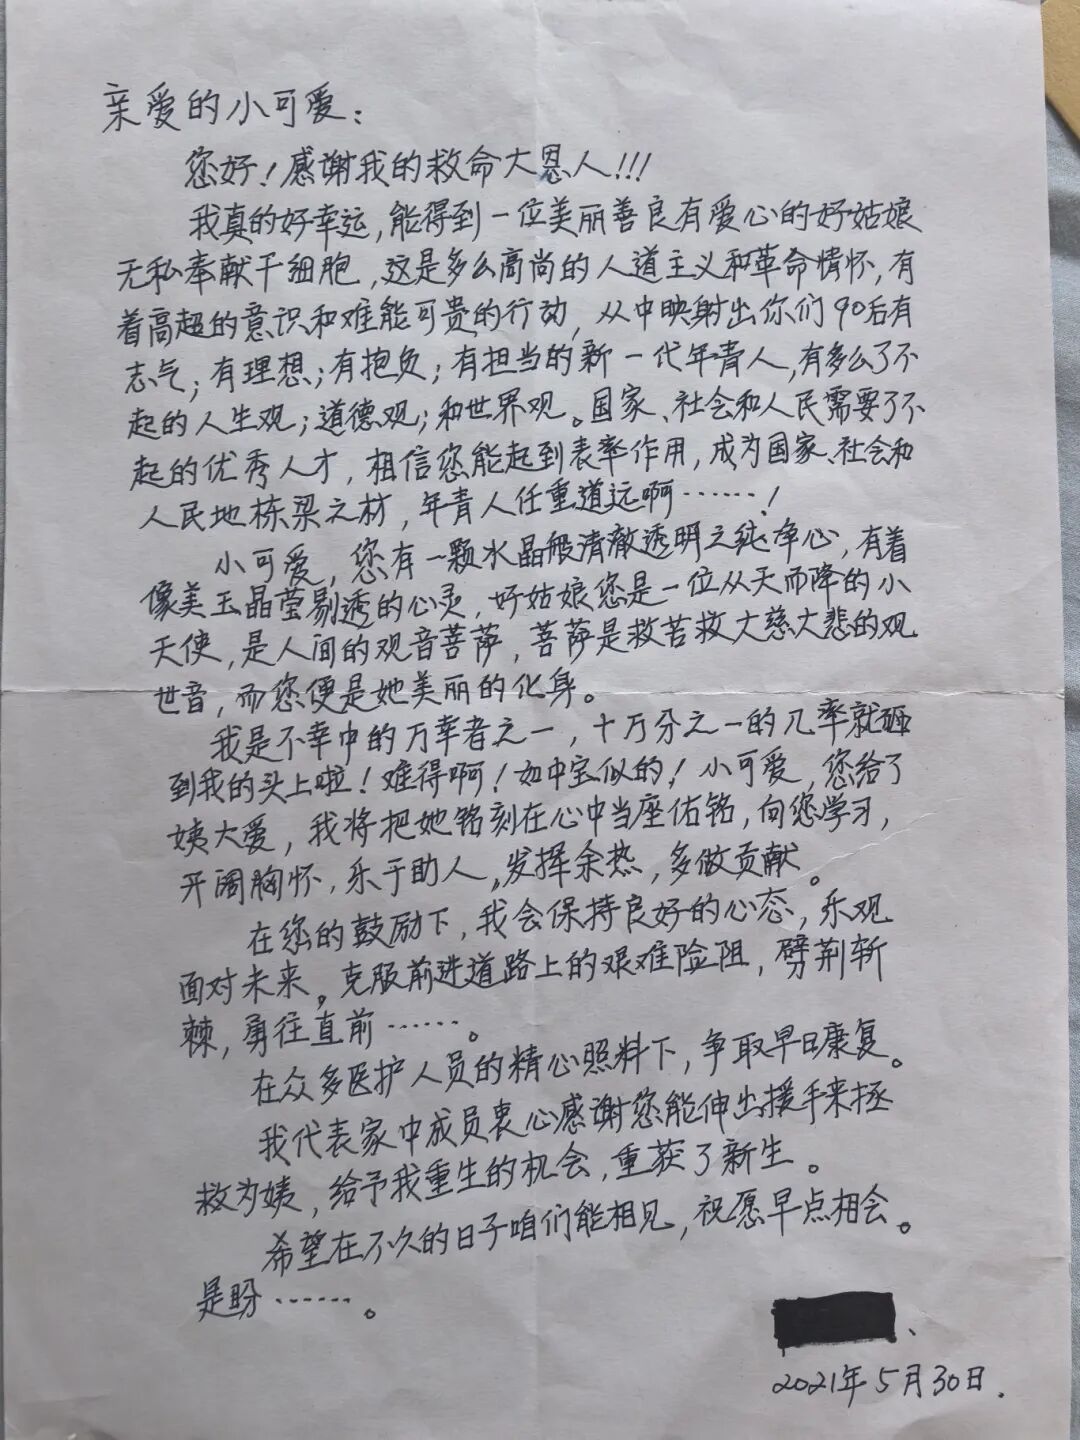 亲爱的小可爱：
您好！感谢我的救命大恩人!!!
我真的好幸运，能得到一位美丽善良有爱心的好姑娘
无私奉献干细胞，这是多么高尚的人道主义和革命情怀，有
着高超的意识和难能可贵的行动，从中映射出你们90后有
志气；有理想；有抱负；有担当的新一代年青人，有多么了不
起的人生观；道德观；和世界观。国家、社会和人民需要了不
起的优秀人才，相信您能起到表率作用，成为国家、社会和
人民地栋梁之材，年青人任重道远啊……！
小可爱，您有一颗水晶般清澈透明之纯净心，有着
像美玉晶莹剔透的心灵，好姑娘您是一位从天而降的小
天使，是人间的观音菩萨，菩萨是救苦救大慈大悲的观
世音，而您便是她美丽的化身。
我是不幸中的万幸者之一，十万分之一的几率就砸
到我的头上啦！难得啊！如中宝似的！小可爱，您给了
姨大爱，我将把她铭刻在心中当座佑铭，向您学习，
开阔胸怀，乐于助人，发挥余热，多做贡献。
在您的鼓励下，我会保持良好的心态，乐观
面对未来。克服前进道路上的艰难险阻，劈荆斩
棘，勇往直前……。
在众多医护人员的精心照料下，争取早日康复。
我代表家中成员衷心感谢您能伸出援手来拯
救为姨，给予我重生的机会，重获了新生。
希望在不久的日子咱们能相见，祝愿早点相会。
是盼……。
2021年5月30日.